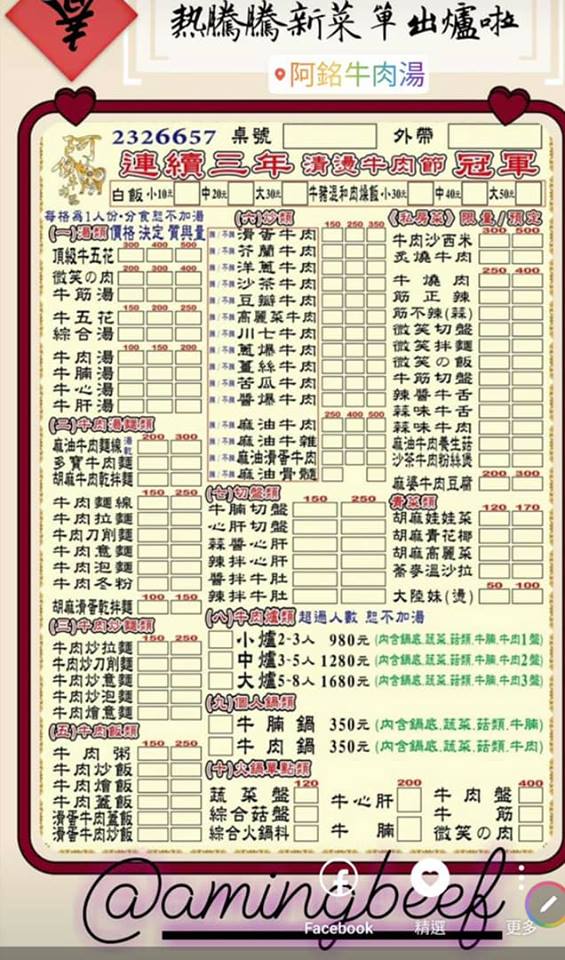 春
熱騰騰新菜單出爐啦
阿銘牛肉湯
2326657 桌號 外帶
連續三年 清燙牛肉節 冠軍
白飯 小10元 中20元 大30元 牛豬混和肉燥飯 小30元 中40元 大50元
每格為1人份·分食恕不加湯
(一)湯類 價格決定質與量
300 400 500
頂級牛五花
200 300 400
微笑の肉
牛筋湯
150 200 250
牛五花
綜合湯
100 150 200
牛肉湯
牛腩湯
牛心湯
牛肝湯
(二)牛肉湯麵類
200 300
麻油牛肉麵線 湯 乾
多寶牛肉麵
胡麻牛肉乾拌麵
150 250
牛肉麵線
牛肉拉麵
牛肉刀削麵
牛肉意麵
牛肉泡麵
牛肉冬粉
100 150
胡麻滑蛋乾拌麵
(三)牛肉炒麵類
150 250
牛肉炒拉麵
牛肉炒刀削麵
牛肉炒意麵
牛肉炒泡麵
牛肉燴意麵
(五)牛肉飯類
150 250
牛肉粥
牛肉炒飯
牛肉燴飯
牛肉蓋飯
滑蛋牛肉蓋飯
滑蛋牛肉炒飯
(六)炒類
150 250 350
滑蛋牛肉
芥蘭牛肉
洋蔥牛肉
沙茶牛肉
豆瓣牛肉
高麗菜牛肉
川七牛肉
蔥爆牛肉
薑絲牛肉
苦瓜牛肉
醬爆牛肉
250 400 500
麻油牛肉
麻油牛雜
麻油滑蛋牛肉
麻油骨髓
(七)切盤類
150 250
牛腩切盤
心肝切盤
蒜醬心肝
辣拌心肝
醬拌牛肚
辣拌牛肚
《私房菜》限量/預定
300 500
牛肉沙西米
炙燒牛肉
250 400
牛燒肉
筋正辣
筋不辣(蒜)
微笑切盤
微笑拌麵
微笑の飯
牛筋切盤
辣醬牛舌
蒜味牛舌
蒜味牛肉
麻油牛肉養生菇
沙茶牛肉粉絲煲
200 300
麻婆牛肉豆腐
青菜類
120 170
胡麻娃娃菜
胡麻青花椰
胡麻高麗菜
蕎麥溫沙拉
50 100
大陸妹(燙)
(八)牛肉爐類 超過人數 恕不加湯
小爐2-3人 980元 (內含鍋底.蔬菜.菇類.牛腩.牛肉1盤)
中爐3-5人 1280元 (內含鍋底.蔬菜.菇類.牛腩.牛肉2盤)
大爐5-8人 1680元 (內含鍋底.蔬菜.菇類.牛腩.牛肉3盤)
(九)個人鍋類
牛腩鍋 350元 (內含鍋底.蔬菜.菇類.牛腩)
牛肉鍋 350元 (內含鍋底.蔬菜.菇類.牛肉)
(十)火鍋單點類
120 200 400
蔬菜盤 牛心肝 牛肉盤
綜合菇盤 牛筋
綜合火鍋料 牛腩 微笑の肉
@amingbeef
Facebook 精選 更多